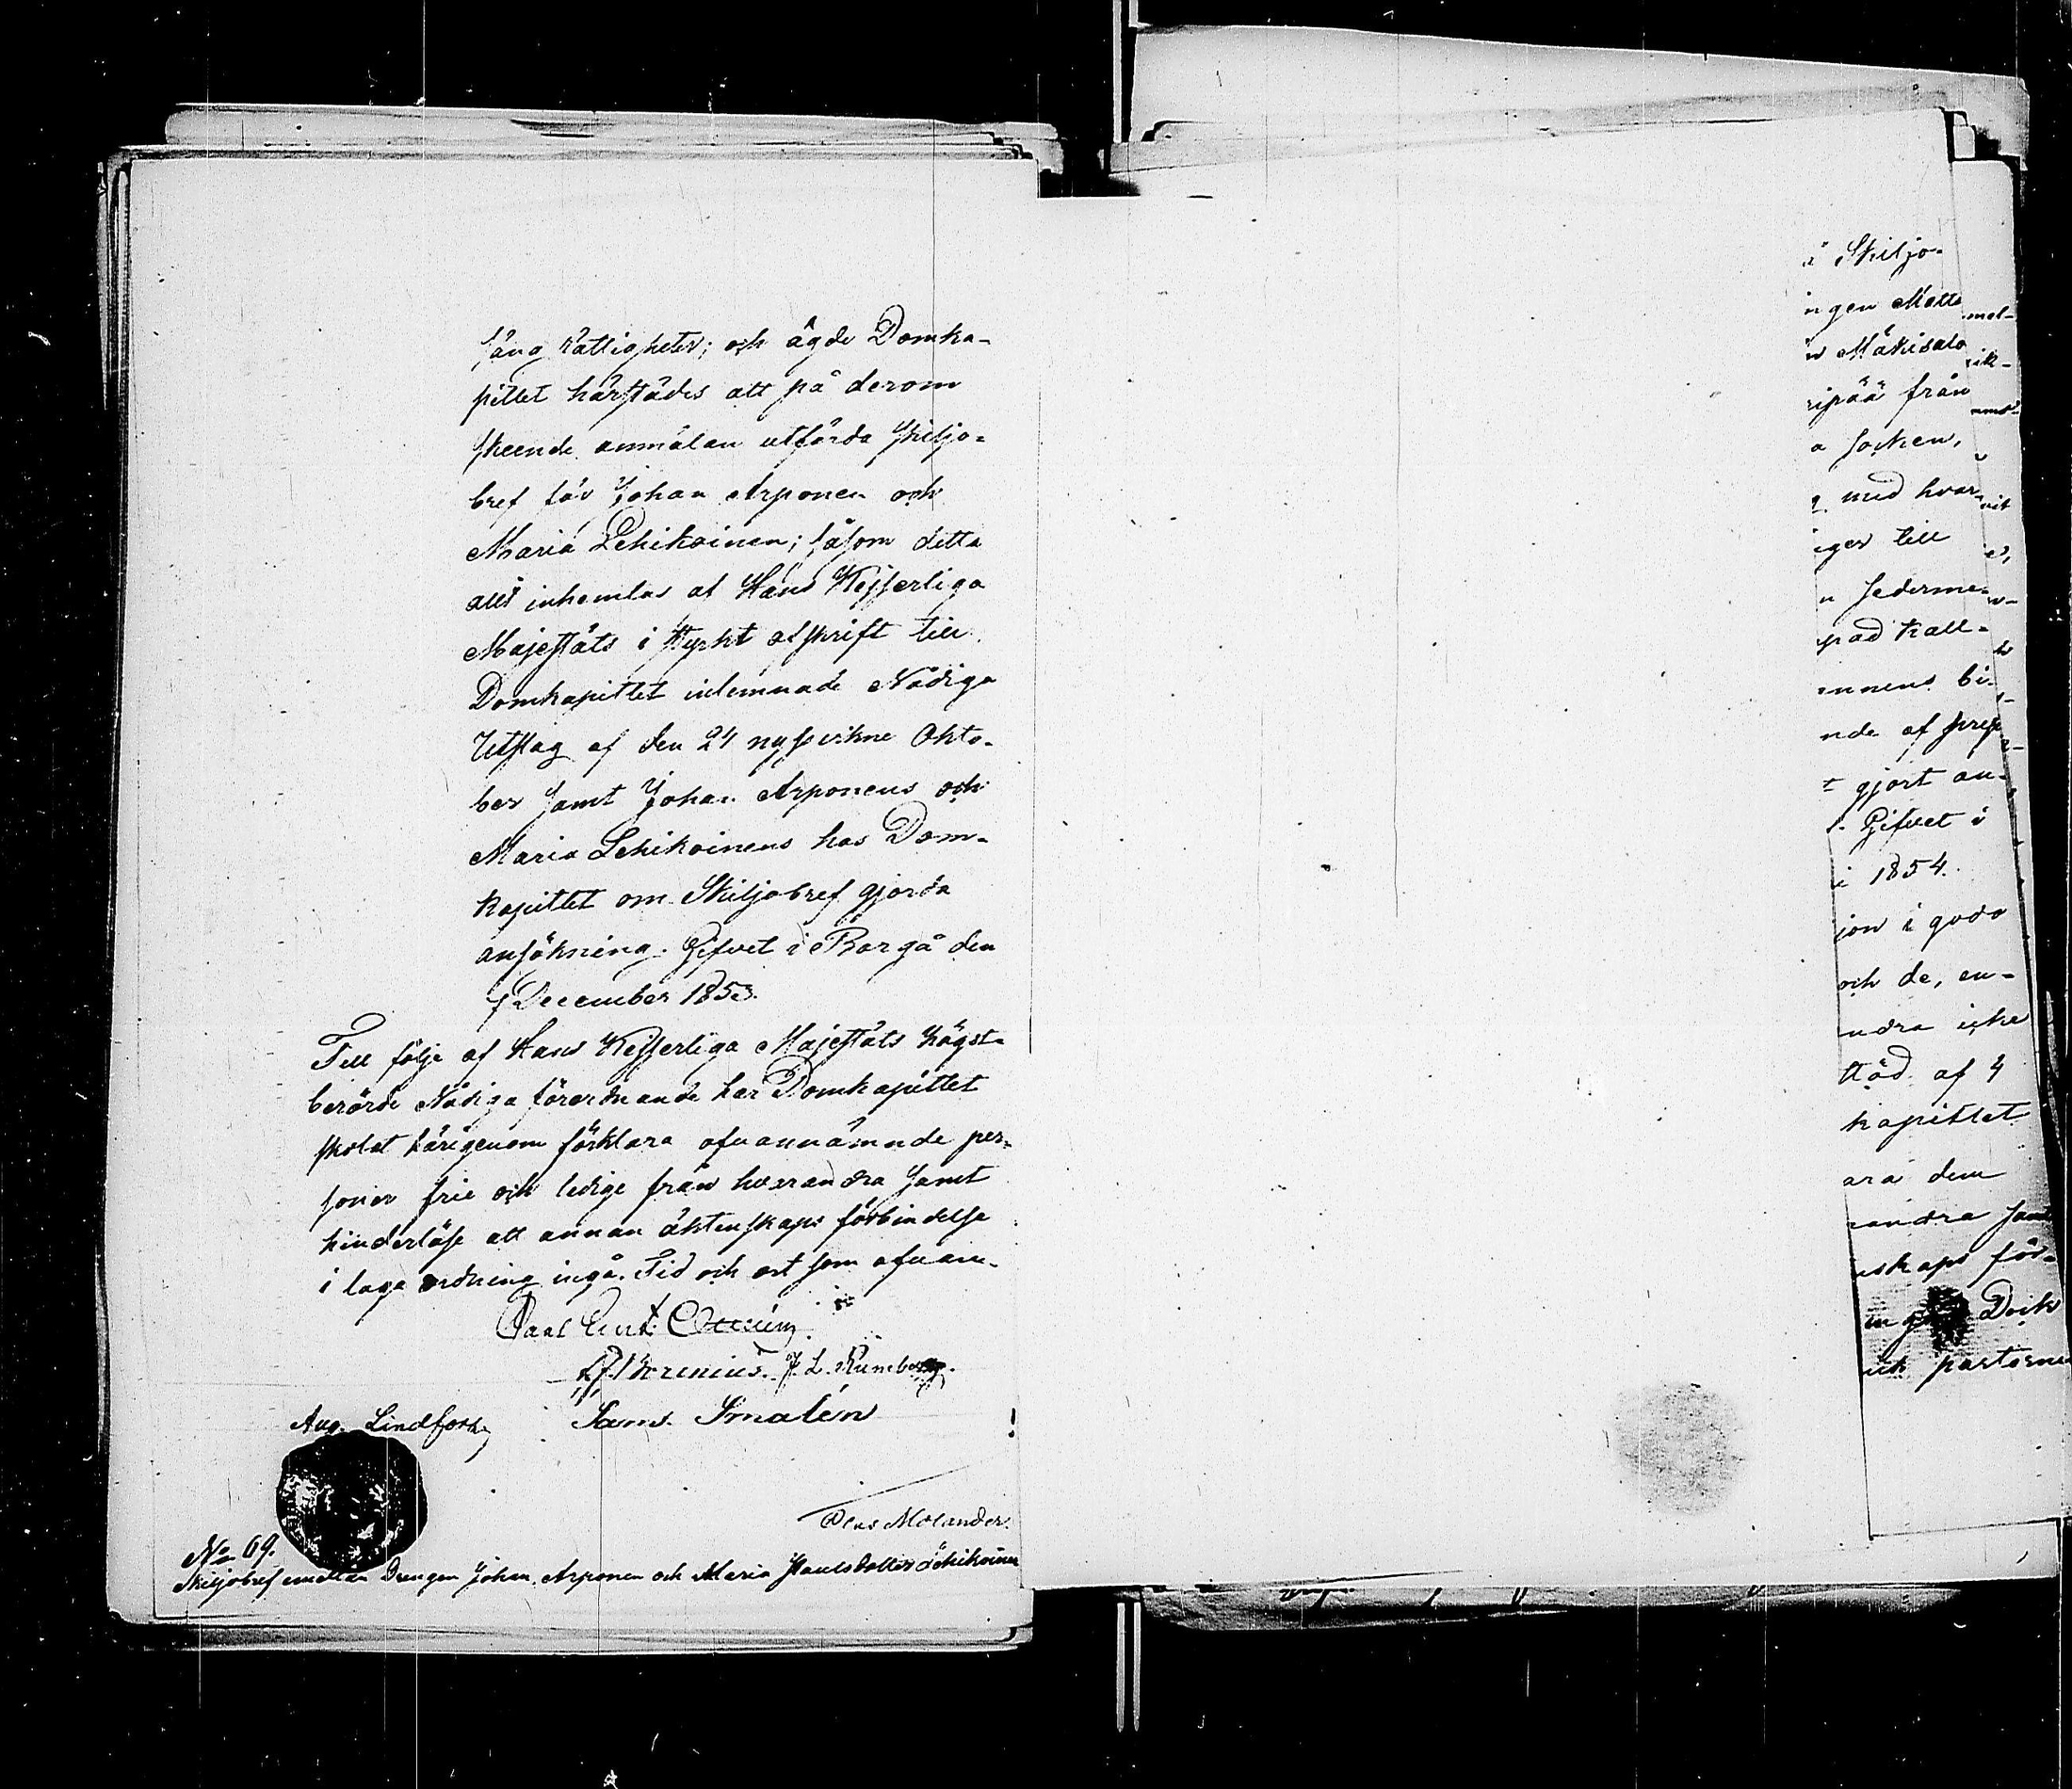 säng rättigheter; och ägde Domka-
pitlet härstädes att på derom
skeende anmälan utfärda skiljo-
bref för Johan Arponen och
Maria Lehikoinen; såsom detta
allt inhemtas af Hans Kejserliga
Majestäts i styrkt afskrift till
Domkapitlet inlemnade Nådiga
Utslag af den 24 nyssvikne Okto-
ber samt Johan Arponens och
Maria Lehikoinens hos Dom-
kapitlet om Skiljobref gjorda
ansökning. Gifvet i Borgå den
7 December 1853.
Till följe af Hans Kejserliga Majestäts högst-
berörde Nådiga förordnande har Domkapitlet
skolat härigenom förklara ofvannämnde per-
soner frie och ledige från hvarandra samt
hinderlöse att annan äktenskaps förbindelse
i laga ordning ingå. Tid och ort som ofvan.
Carl Gust. Ottelin
J. L. Runeberg.
Aug. Lindfors
Sam. Smalén
Clas Molander.
No 69.
Skiljobref emellan Drengen Johan Arponen och Maria Paulsdotter Lehikoinen
Skiljo-
ngen Matts
Mäkisalo
ripää från
a socken,
med hvar-
iger till
n Federme-
pad kall-
ennens bi-
nde af pres
t gjort an-
Gifvet i
i 1854.
jon i godo
och de, en-
ndra icke
töd af 4
kapitlet
ara dem
randra sam
nskaps för-
Dock
ick parterne